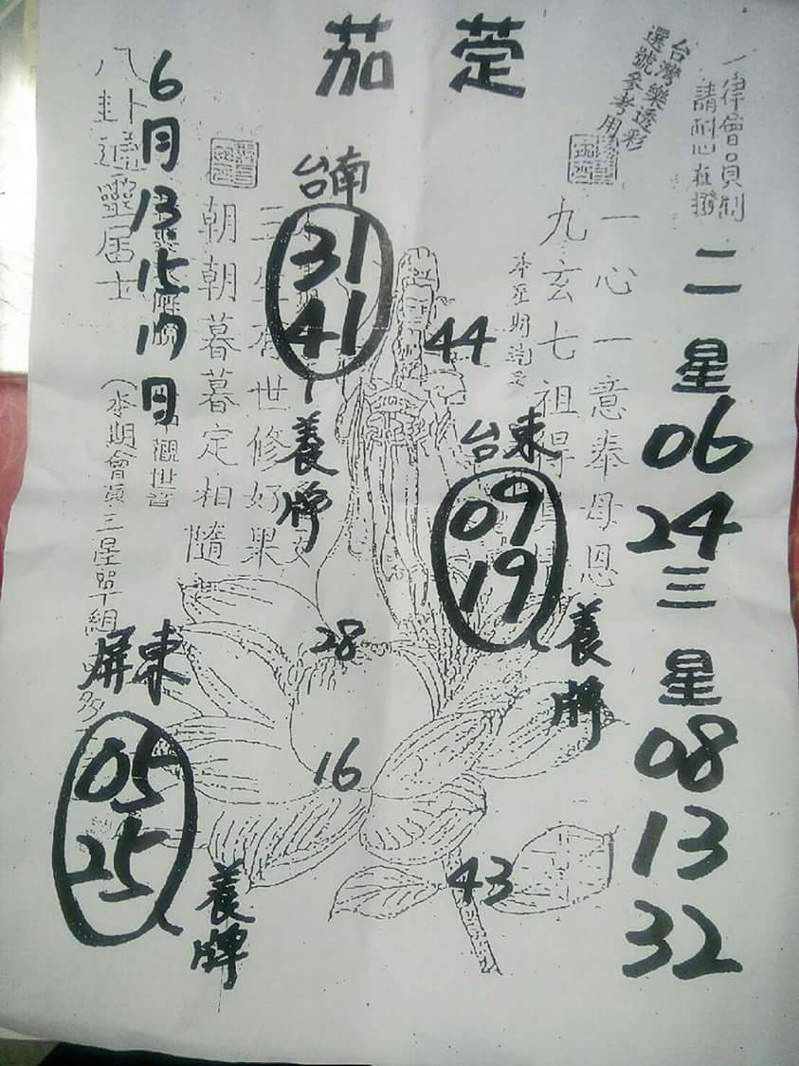 茄萣
一律會員制
請耐心在撥
台灣樂透彩
選號參考用
二星
06
24
三星
08
13
32
一心一意奉母恩
九玄七祖得
44
台東
09
19
養牌
台南
31
41
養牌
世修好果
朝朝暮暮定相隨
28
16
43
6月13.15.17日
觀世音
八卦
居士
(本期會員三星單組
屏東
05
25
養牌